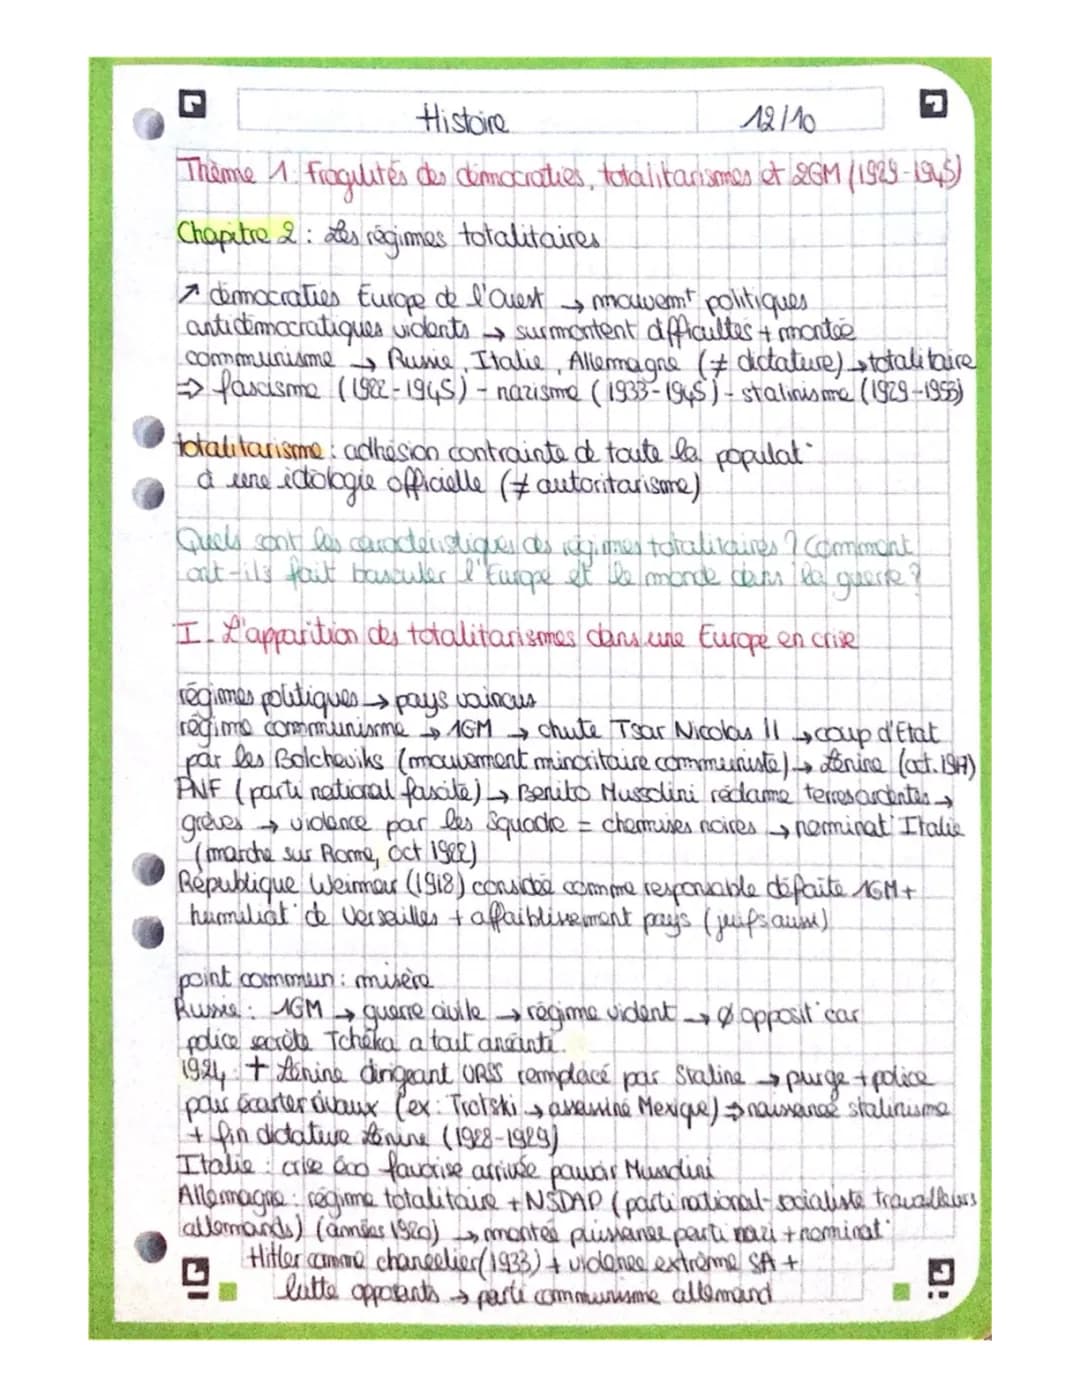 Histoire 12/10
Thème 1. Fragilités des démocraties, totalitarismes et 2GM (1929-1945)
Chapitre 2 : Les régimes totalitaires
↗ démocraties Europe de l'Ouest → mouvemt politiques
antidémocratiques violents → surmontent difficultés + montée
communisme → Russie, Italie, Allemagne (≠ dictature) → totalitaire
⇒ fascisme (1922-1945) - nazisme (1933-1945) - stalinisme (1929-1953)
totalitarisme : adhésion contrainte de toute la populat°
à une idéologie officielle (≠ autoritarisme)
Quels sont les caractéristiques des régimes totalitaires ? Comment
ont-ils fait basculer l'Europe et le monde dans la guerre ?
I. L'apparition des totalitarismes dans une Europe en crise
régimes politiques → pays vaincus
régime communisme → 1GM → chute Tsar Nicolas II → coup d'Etat
par les Bolcheviks (mouvement minoritaire communiste) → Lénine (oct. 1917)
PNF (parti national fasciste) → Benito Mussolini réclame terres →
grèves → violence par les Squadre = chemises noires → nominat° Italie
(marche sur Rome, oct 1922)
République Weimar (1918) considé comme responsable défaite 1GM +
humiliat° de Versailles + affaiblissement pays (juifs aussi)
point commun : misère
Russie : 1GM → guerre civile → régime violent → Ø opposit° car
police secrète Tchéka a tout anéanti.
1924 : + Lénine dirigeant URSS remplacé par Staline → purge + police
pour écarter rivaux (ex : Trotski → assassiné Mexique) ⇒ naissance stalinisme
+ fin dictature Lénine (1928-1929)
Italie : crise éco favorise arrivée pouvoir Mussolini
Allemagne : régime totalitaire + NSDAP (parti national-socialiste travailleurs
allemands) (années 1920) → montée puissance parti nazi + nominat°
Hitler comme chancelier (1933) + violence extrême SA +
lutte opposants → parti communisme allemand